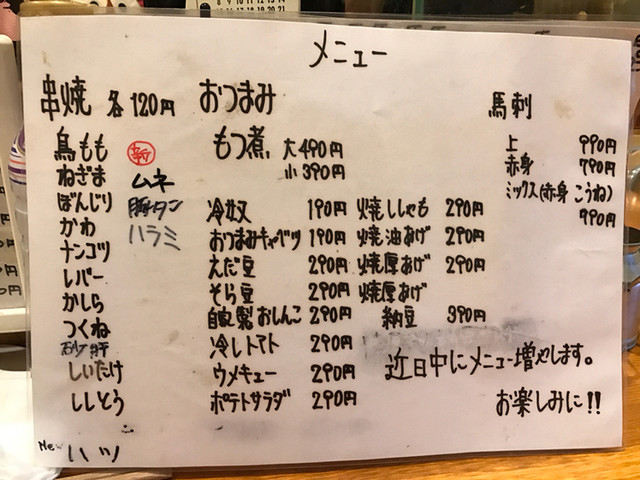 メニュー
串焼 各120円
鳥もも
ねぎま
ぼんじり
かわ
ナンコツ
レバー
かしら
つくね
砂肝
しいたけ
ししとう
New ハツ
新
ムネ
豚タン
ハラミ
おつまみ
もつ煮 大490円
小390円
冷奴 190円
おつまみキャベツ 190円
えだ豆 290円
そら豆 290円
自家製おしんこ 290円
冷しトマト 290円
ウメキュー 290円
ポテトサラダ 290円
焼ししゃも 290円
焼油あげ 290円
焼厚あげ 290円
焼厚あげ
納豆 390円
馬刺
上 990円
赤身 790円
ミックス(赤身 こうね)
990円
近日中にメニュー増やします。
お楽しみに!!